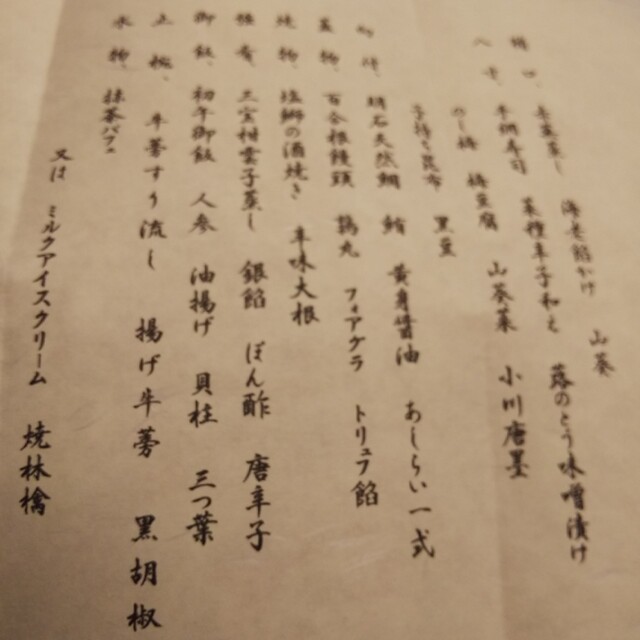 蒸し 海老餡かけ 山葵
八寸、手綱寿司 菜種辛子和え 蕗のとう味噌漬け
のし梅 梅豆腐 山葵菜 小川唐墨
子持ち昆布 黒豆
明石天然鯛 鮪 黄身醤油 あしらい一式
百合根饅頭 鶉丸 フォアグラ トリュフ餡
焼物、塩鰤の酒焼き 辛味大根
雲子蒸し 銀餡 ぽん酢 唐辛子
御飯、初午御飯 人参 油揚げ 貝柱 三つ葉
止椀、牛蒡すり流し 揚げ牛蒡 黒胡椒
水物、抹茶パフェ
又は ミルクアイスクリーム 焼林檎